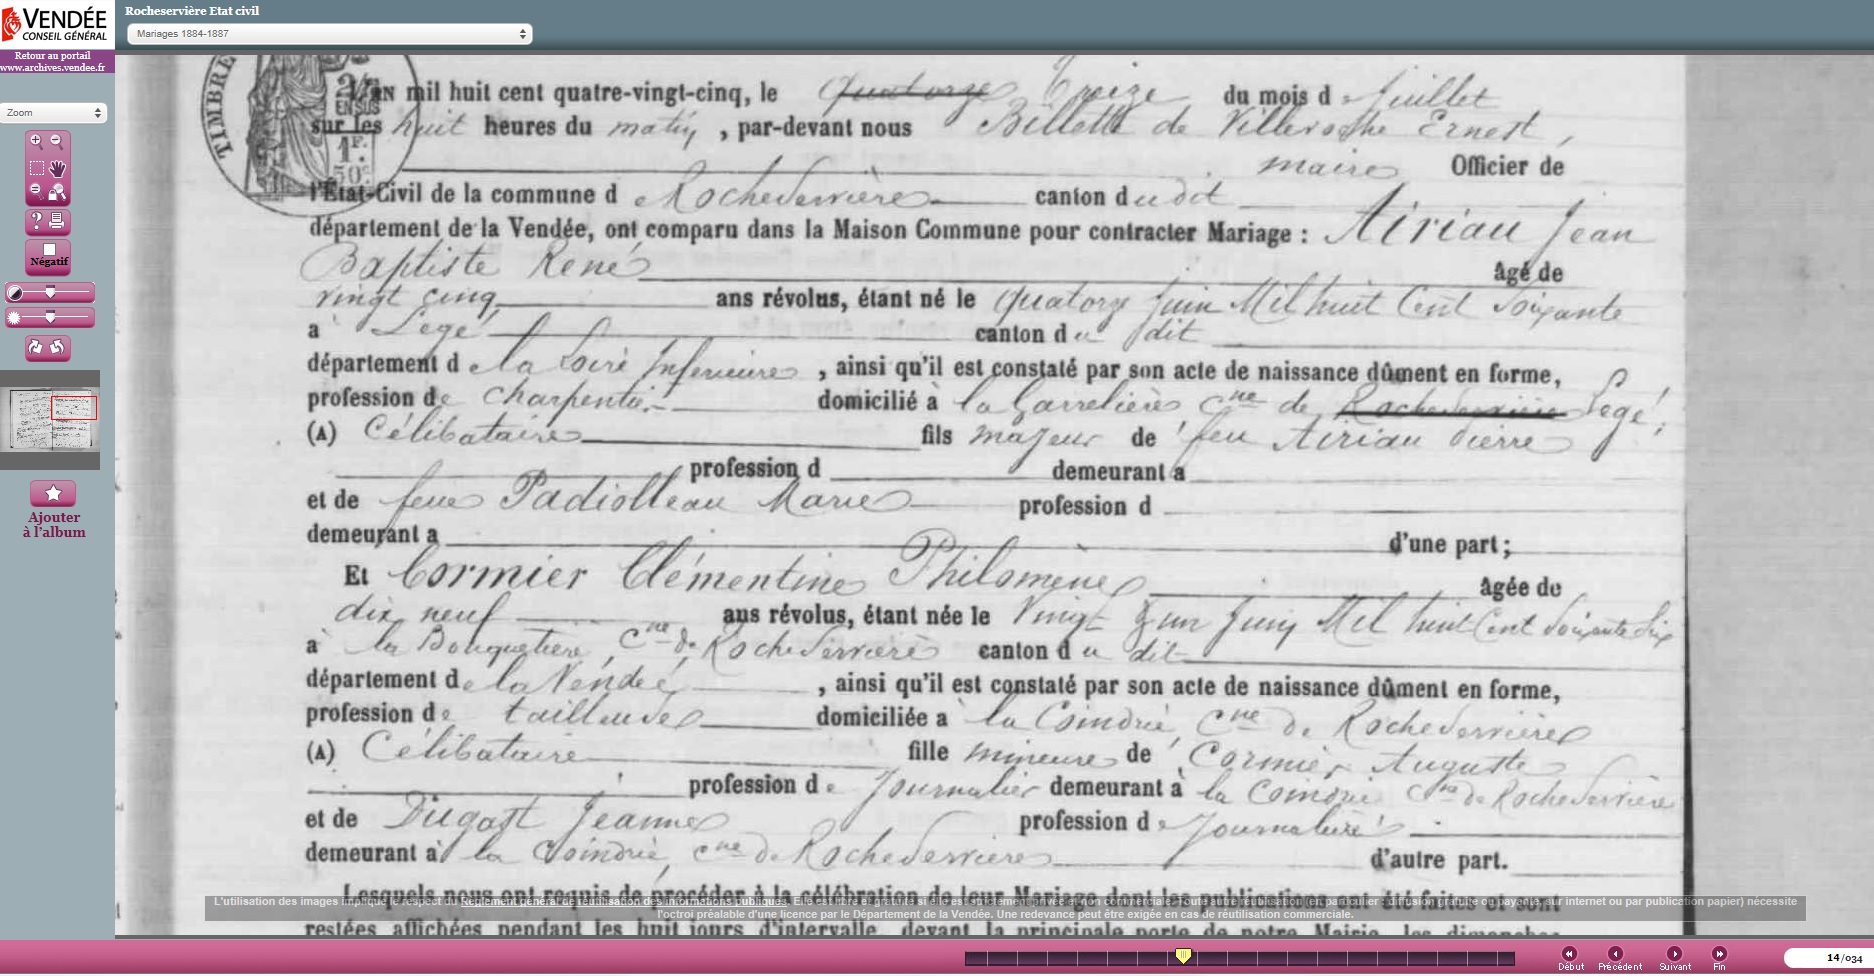 VENDÉE
CONSEIL GÉNÉRAL
Retour au portail
www.archives.vendee.fr
Rocheservière Etat civil
Mariages 1884-1887
Zoom
Négatif
Ajouter
à l'album
TIMBRE
2/10
EN SUS
1F.
50c.
L'AN mil huit cent quatre-vingt-cinq, le quatorze Treize du mois de Juillet
sur les huit heures du matin, par-devant nous Billette de Villeroche Ernest,
maire Officier de
l'État-Civil de la commune de Rocheservière canton du dit
département de la Vendée, ont comparu dans la Maison Commune pour contracter Mariage : Airiau Jean
Baptiste René âgé de
vingt cinq ans révolus, étant né le quatorze Juin Mil huit Cent Soixante
à Legé canton du dit
département de la Loire Inférieure, ainsi qu'il est constaté par son acte de naissance dûment en forme,
profession de charpentier domicilié à la Garrelière cne de Rocheservière Legé,
(A) Célibataire fils majeur de feu Airiau Pierre
profession d demeurant à
et de feue Padiolleau Marie profession d
demeurant à d'une part ;
Et Cormier Clémentine Philomène âgée de
dix neuf ans révolus, étant née le Vingt Juin Mil huit Cent Soixante Six
à la Bouquetière, Cne de Rocheservière canton du dit
département de la Vendée, ainsi qu'il est constaté par son acte de naissance dûment en forme,
profession de tailleuse domiciliée à la Coindrie, Cne de Rocheservière
(A) Célibataire fille mineure de Cormier Auguste
profession de Journalier demeurant à la Coindrie Cne de Rocheservière
et de Dugast Jeanne profession de Journalière
demeurant à la Coindrie, cne de Rocheservière d'autre part.
Lesquels nous ont requis de procéder à la célébration de leur Mariage dont les publications ont été faites et sont
L'utilisation des images implique le respect du Règlement général de réutilisation des informations publiques. Elle est libre et gratuite si elle est strictement privée et non commerciale. Toute autre réutilisation (en particulier : diffusion gratuite ou payante, sur internet ou par publication papier) nécessite
l'octroi préalable d'une licence par le Département de la Vendée. Une redevance peut être exigée en cas de réutilisation commerciale.
restées affichées pendant les huit jours d'intervalle, devant la principale porte de notre Mairie, les dimanches
Début Précédent Suivant Fin
14/034